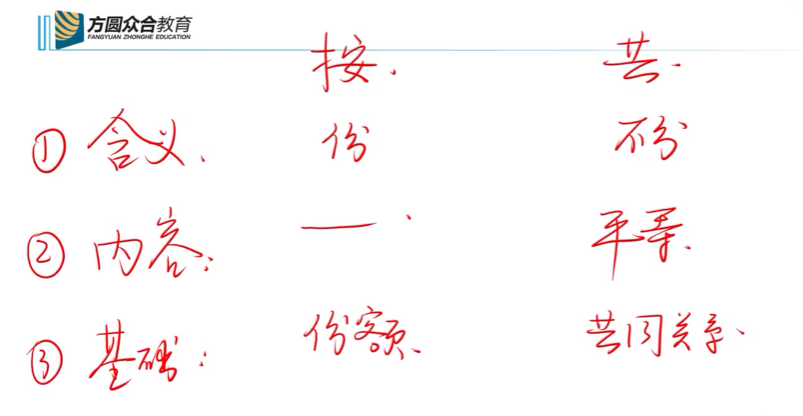 方圆众合教育
FANGYUAN ZHONGHE EDUCATION
按. 共.
① 含义、 份 不份
② 内容: — . 平等、
③ 基础: 份额、 共同关系、